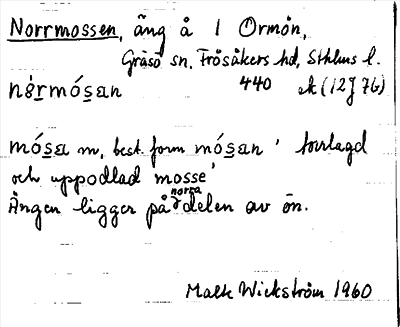 Norrmossen, äng å 1 Ormön,
Gräsö sn, Frösåkers hd, Sthlms l.
nórmósan 440 ek (12J 76)
mósa m, best. form mósan 'torrlagd
och uppodlad mosse'
Ängen ligger på norra delen av ön.
Mats Wickström 1960